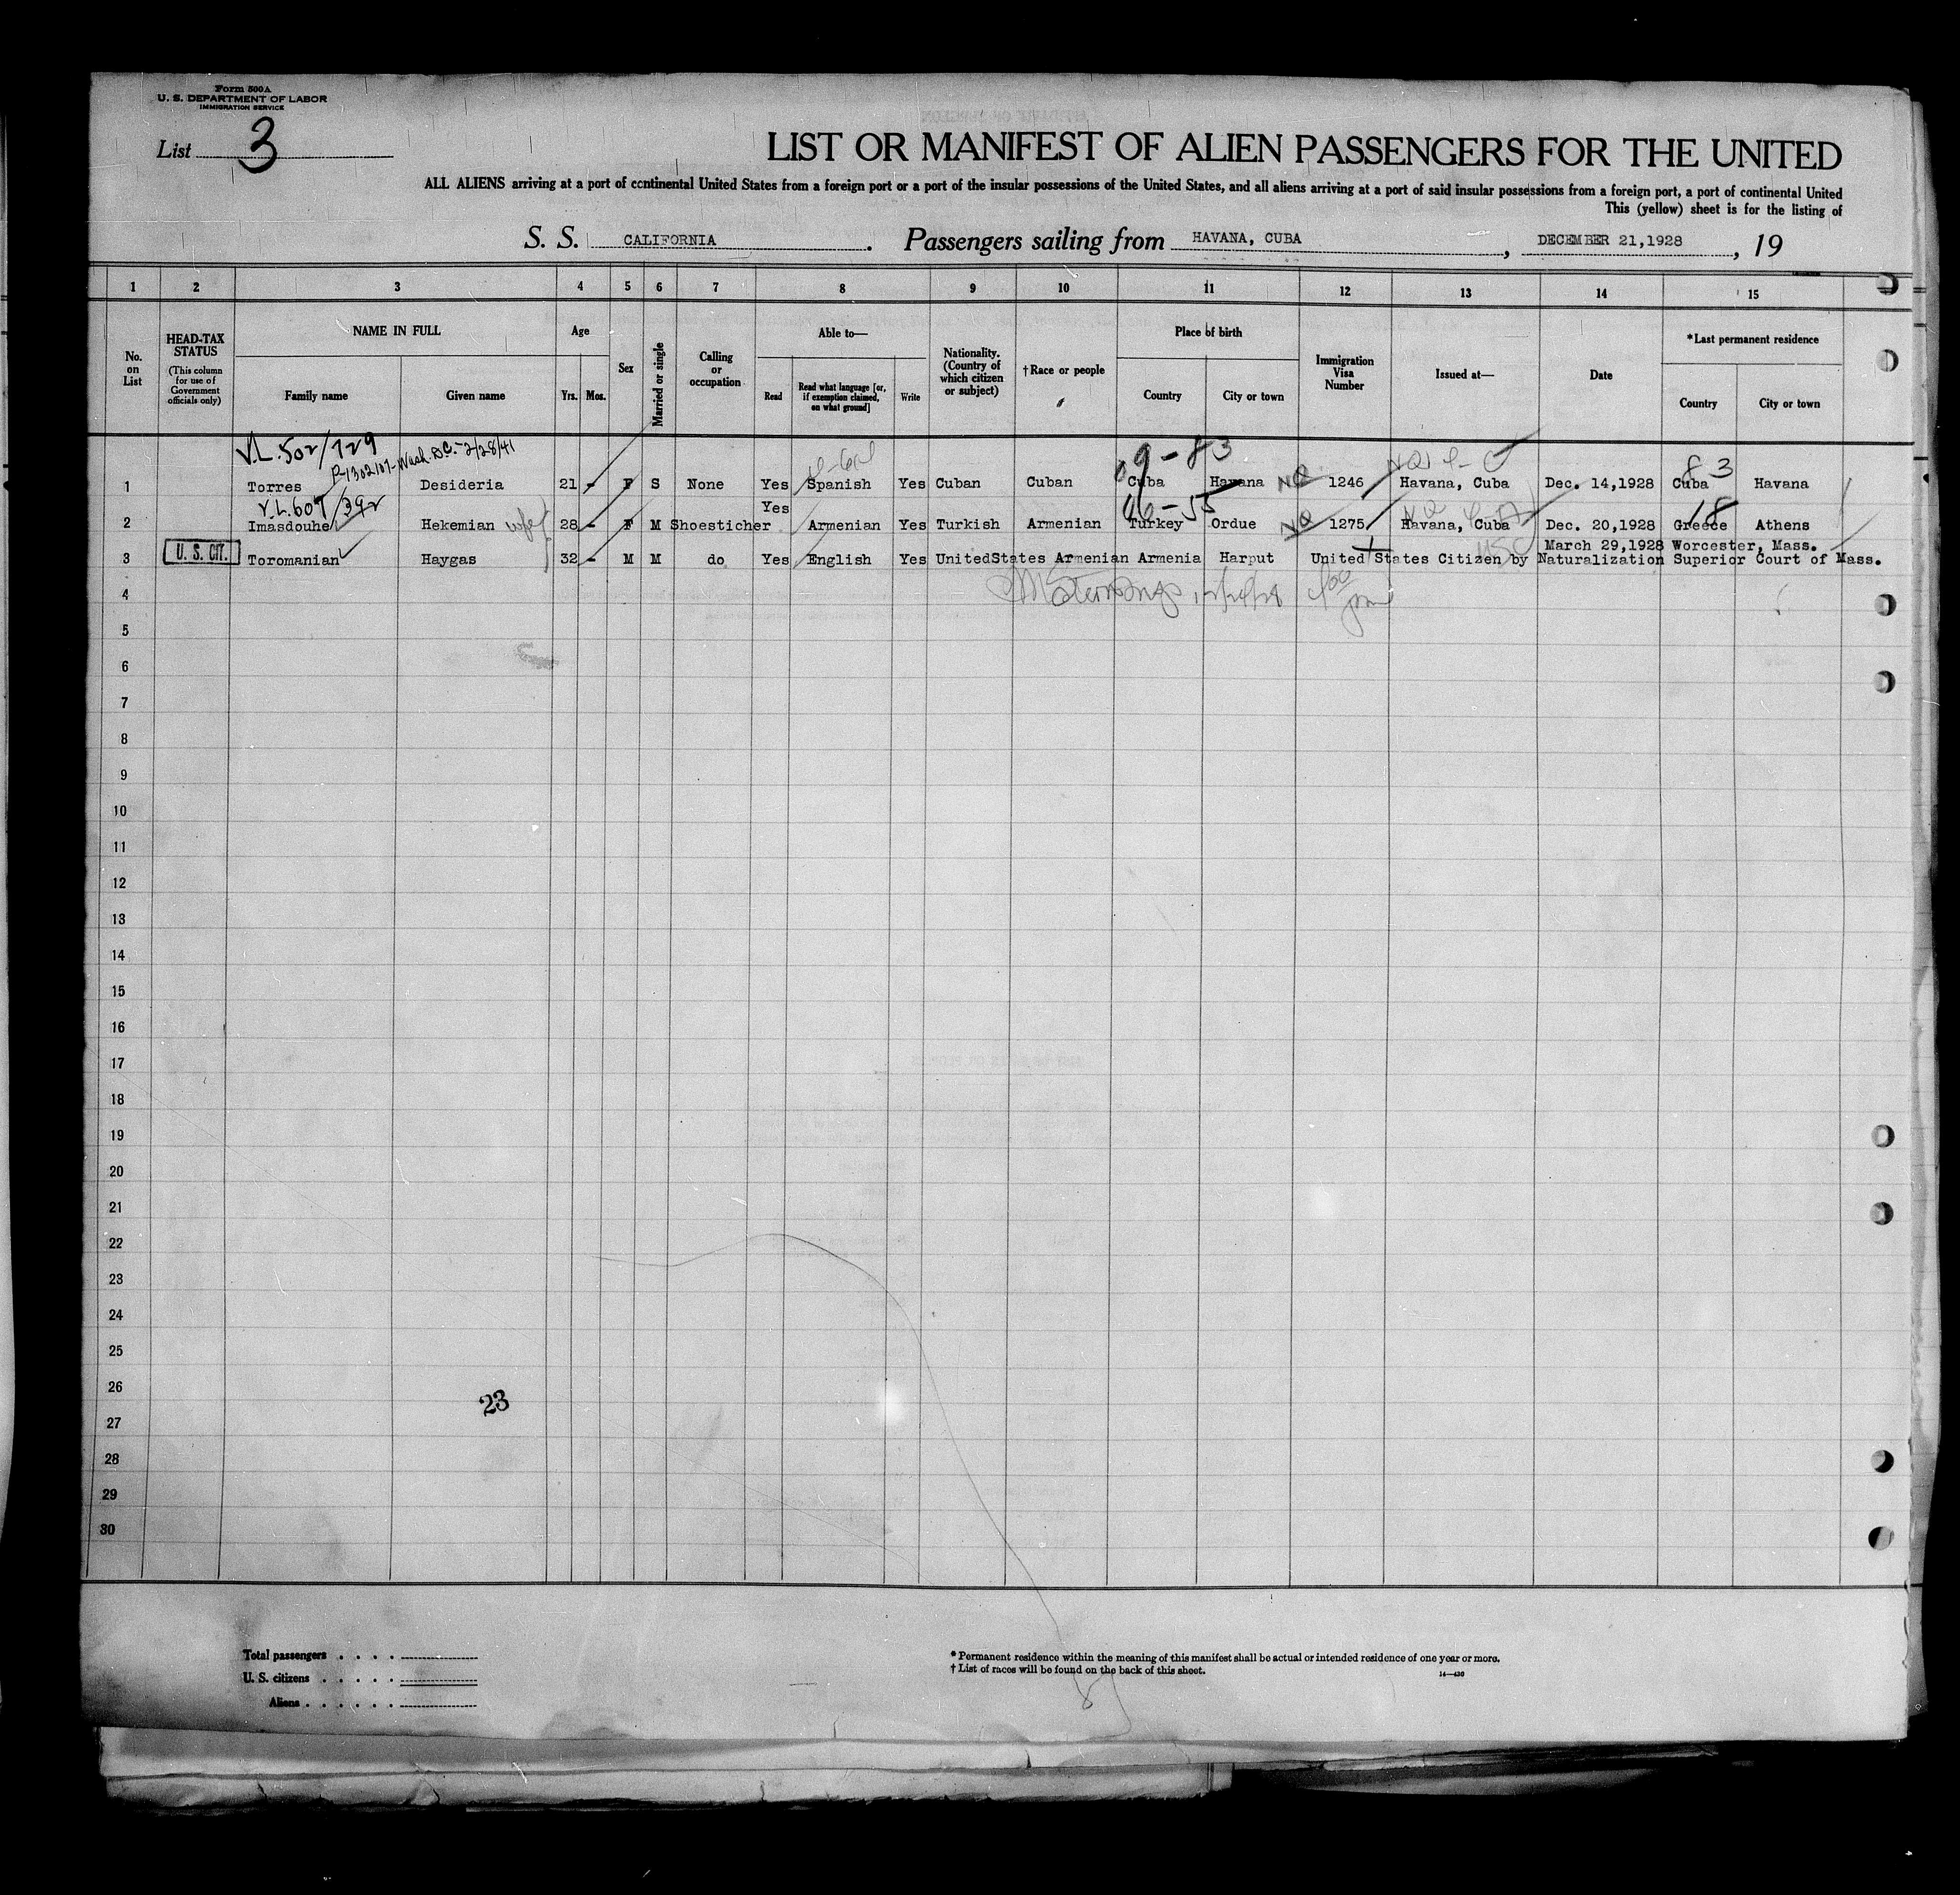 Form 500A
U. S. DEPARTMENT OF LABOR
IMMIGRATION SERVICE
List 3
LIST OR MANIFEST OF ALIEN PASSENGERS FOR THE UNITED
ALL ALIENS arriving at a port of continental United States from a foreign port or a port of the insular possessions of the United States, and all aliens arriving at a port of said insular possessions from a foreign port, a port of continental United
This (yellow) sheet is for the listing of
S. S. CALIFORNIA. Passengers sailing from HAVANA, CUBA, DECEMBER 21,1928, 19
1 2 3 4 5 6 7 8 9 10 11 12 13 14 15
No. on List
HEAD-TAX STATUS
(This column for use of Government officials only)
NAME IN FULL
Family name Given name
Age
Yrs. Mos.
Sex
Married or single
Calling or occupation
Able to—
Read
Read what language [or, if exemption claimed, on what ground]
Write
Nationality. (Country of which citizen or subject)
†Race or people
Place of birth
Country City or town
Immigration Visa Number
Issued at—
Date
*Last permanent residence
Country City or town
V.L. 502/729
P-1302107-Wash. D.C.-2/28/41
9-83
83
1 Torres Desideria 21 - F S None Yes Spanish Yes Cuban Cuban Cuba Havana NQ 1246 Havana, Cuba Dec. 14,1928 Cuba Havana
V.L. 607/392 Yes 06-55 18
2 Imasdouhe Hekemian wife 28 - F M Shoesticher Armenian Yes Turkish Armenian Turkey Ordue NQ 1275 Havana, Cuba Dec. 20,1928 Greece Athens
March 29,1928 Worcester, Mass.
3 U. S. CIT. Toromanian Haygas 32 - M M do Yes English Yes UnitedStates Armenian Armenia Harput United States Citizen by Naturalization Superior Court of Mass.
USC
4
5
6
7
8
9
10
11
12
13
14
15
16
17
18
19
20
21
22
23
24
25
26
23
27
28
29
30
Total passengers . . . .
U. S. citizens . . . . .
Aliens . . . . . .
* Permanent residence within the meaning of this manifest shall be actual or intended residence of one year or more.
† List of races will be found on the back of this sheet.
14—430